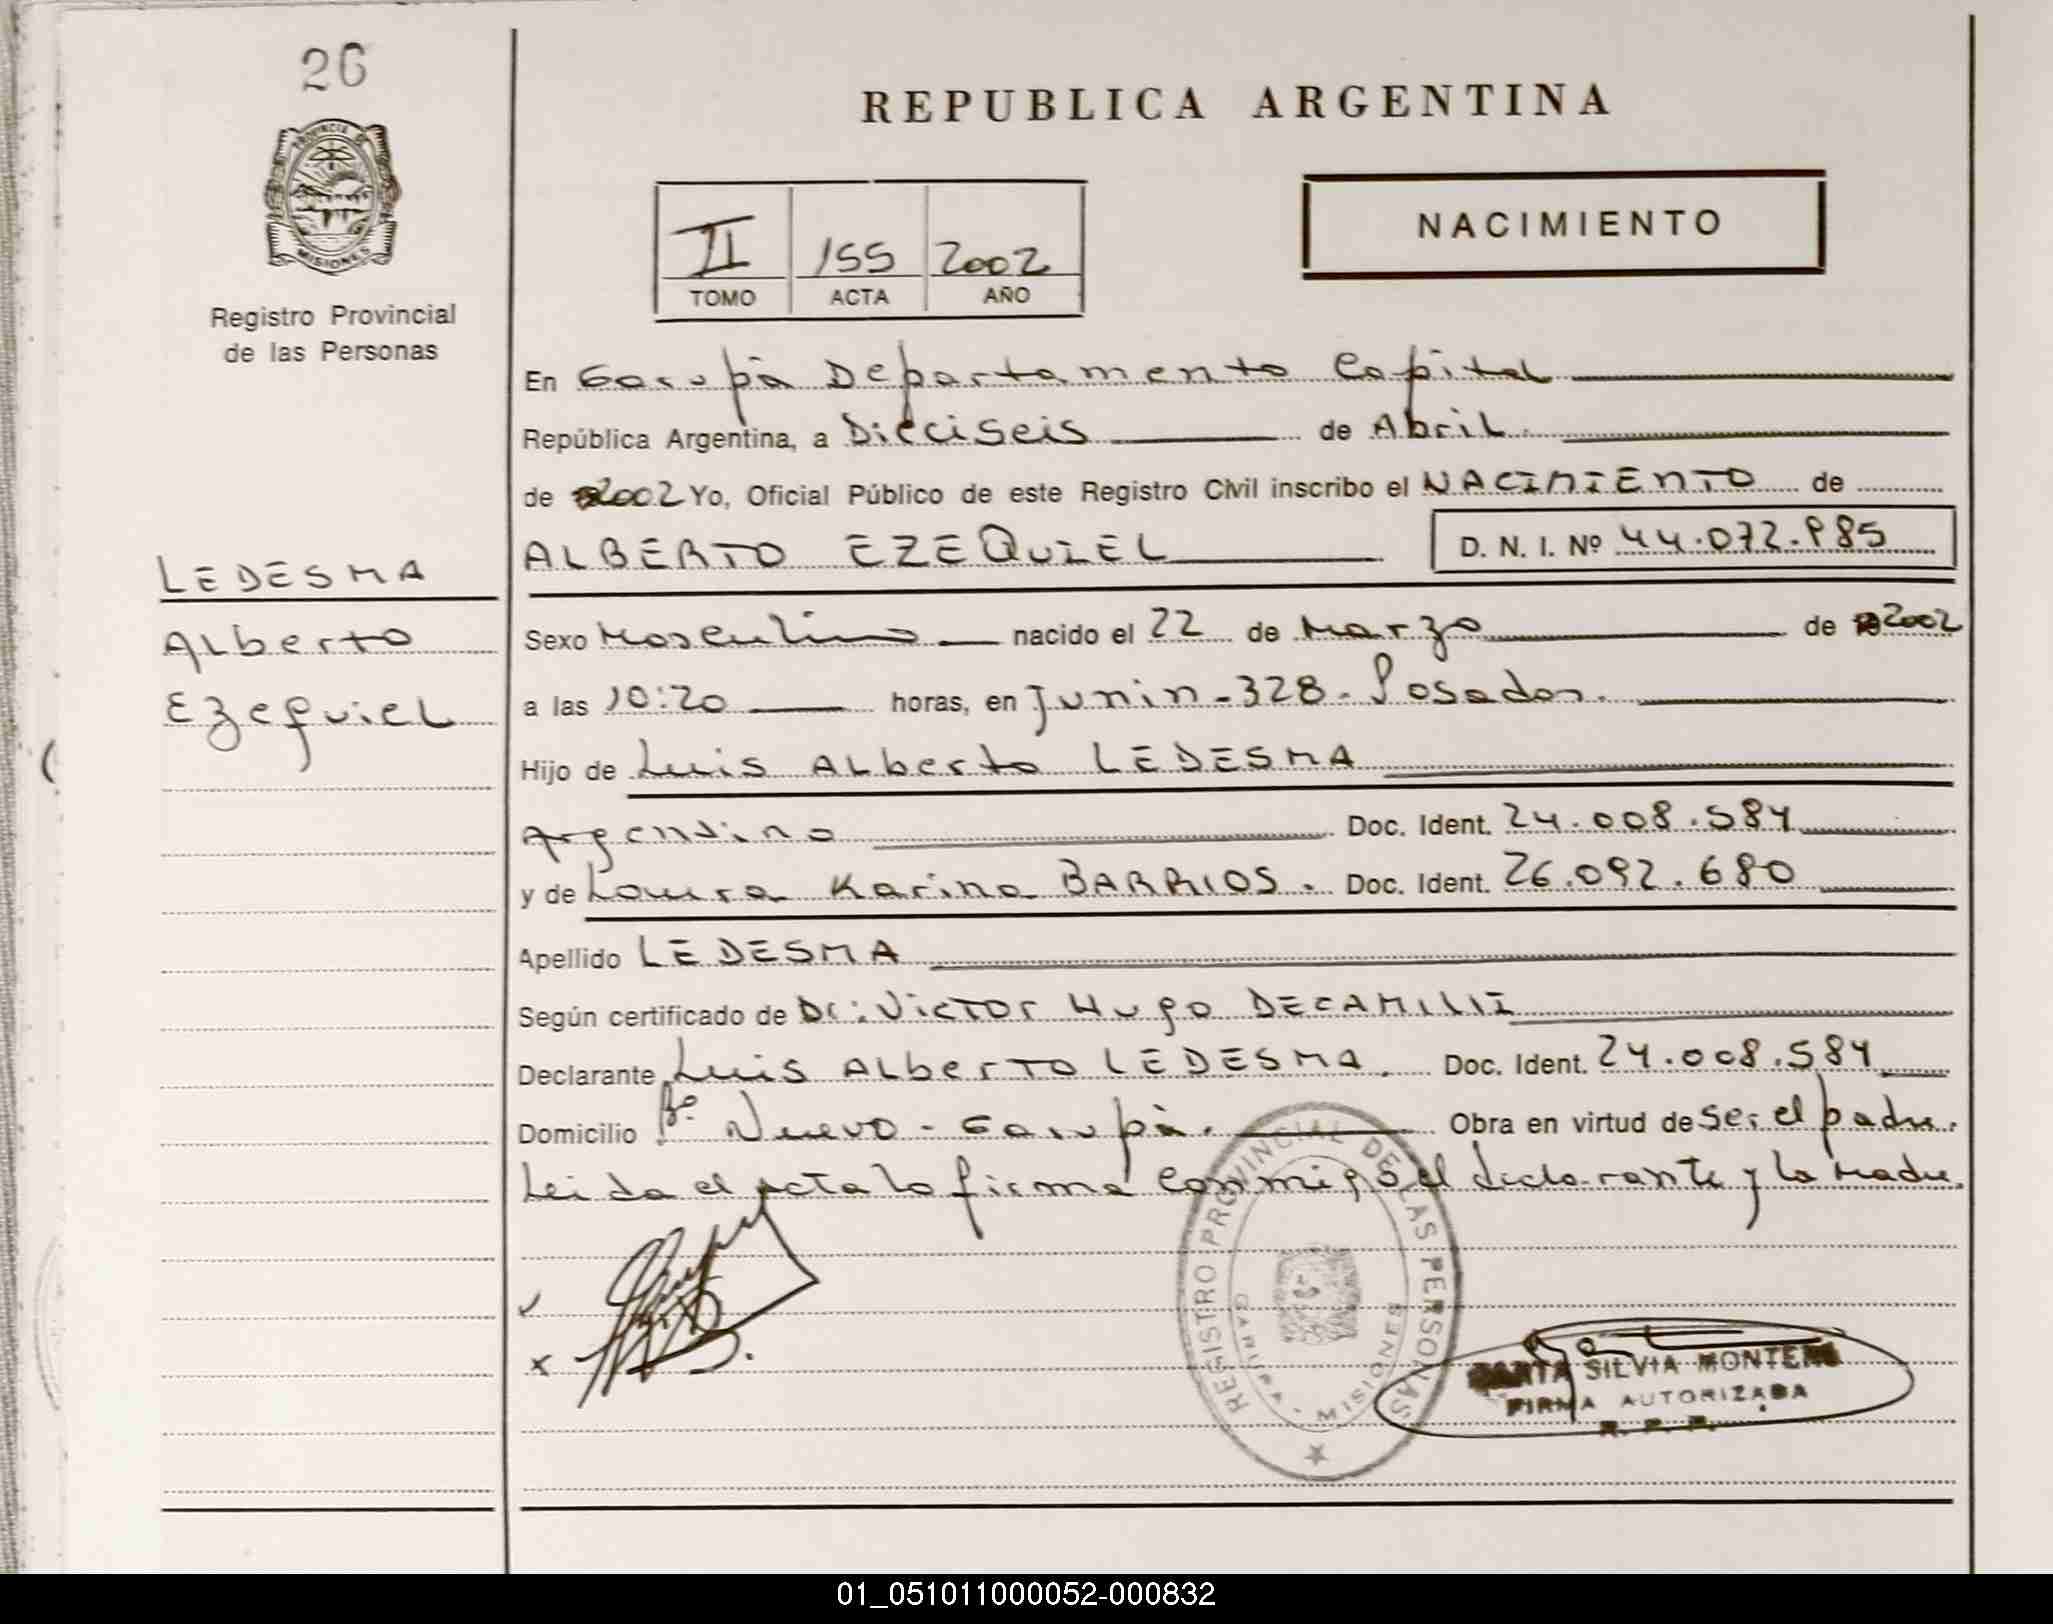 26
PROVINCIA DE
MISIONES
Registro Provincial
de las Personas
LEDESMA
Alberto
Ezequiel
REPUBLICA ARGENTINA
NACIMIENTO
II 155 2002
TOMO ACTA AÑO
En Garupá Departamento Capital
República Argentina, a Dieciseis de Abril
de 2002 Yo, Oficial Público de este Registro Civil inscribo el NACIMIENTO de
ALBERTO EZEQUIEL D. N. I. Nº 44.072.985
Sexo Masculino nacido el 22 de Marzo de 2002
a las 10:20 horas, en Junin-328-Posadas.
Hijo de Luis Alberto LEDESMA
Argentino Doc. Ident. 24.008.584
y de Laura Karina BARRIOS. Doc. Ident. 26.092.680
Apellido LEDESMA
Según certificado de Dr: Victor Hugo DECAMILLI
Declarante Luis Alberto LEDESMA. Doc. Ident. 24.008.584
Domicilio Bº Nuevo - Garupá. Obra en virtud de ser el padre.
Leida el acta la firma conmigo el declarante y la madre.
REGISTRO PROVINCIAL DE LAS PERSONAS
GARUPA - MISIONES
SILVIA MONTERO
FIRMA AUTORIZADA
R. P. P.
01_051011000052-000832